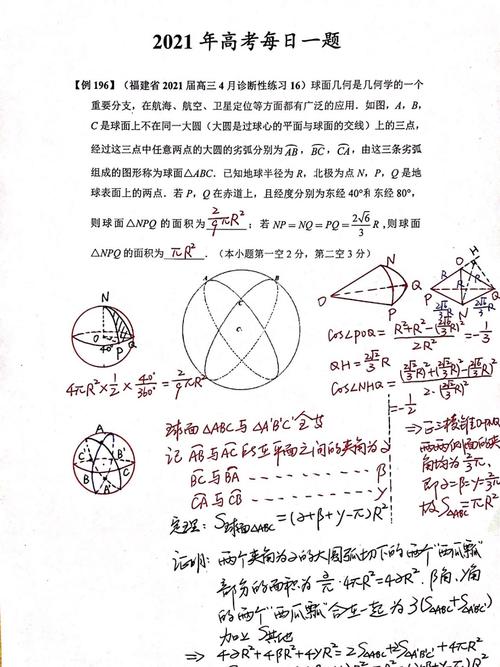 2021 年高考每日一题
【例 196】（福建省 2021 届高三 4 月诊断性练习 16）球面几何是几何学的一个
重要分支，在航海、航空、卫星定位等方面都有广泛的应用．如图，A，B，
C 是球面上不在同一大圆（大圆是过球心的平面与球面的交线）上的三点，
经过这三点中任意两点的大圆的劣弧分别为 AB，BC，CA，由这三条劣弧
组成的图形称为球面△ABC．已知地球半径为 R，北极为点 N，P，Q 是地
球表面上的两点．若 P，Q 在赤道上，且经度分别为东经 40°和东经 80°，
则球面△NPQ 的面积为 2/9 πR²；若 NP=NQ=PQ=2√6/3 R，则球面
△NPQ 的面积为 πR²．（本小题第一空 2 分，第二空 3 分）
N
O
P
Q
40°
A
B
C
O
N
P
Q
H
N
O
P
Q
R
R
4πR²×1/2×40°/360°=2/9πR²
cos∠POQ=(R²+R²-(2√6/3R)²)/2R²=-1/3
QH=2√2/3R
cos∠NHQ=((2√2/3R)²+(2√2/3R)²-(2√6/3R)²)/(2·(2√2/3R)²)
=-1/2
⇒三棱锥O-PNQ
两两侧面的夹
角均为2/3π,
即α=β=γ=2/3π
故S△ABC=πR²
A
B
C
B'
C'
A'
球面△ABC与△A'B'C'全等
记AB与AC所在平面之间的夹角为α
BC与BA β
CA与CB γ
定理：S球面△ABC=(α+β+γ-π)R²
证明：两个夹角为α的大圆弧切下的两个"西瓜瓢"
部分的面积为α/π·4πR²=4αR². β角、γ角
的两个"西瓜瓢"合在一起为3(S△ABC+S△A'B'C')
加上S其他
⇒ 4αR²+4βR²+4γR²=2S△ABC+2S△A'B'C'+4πR²